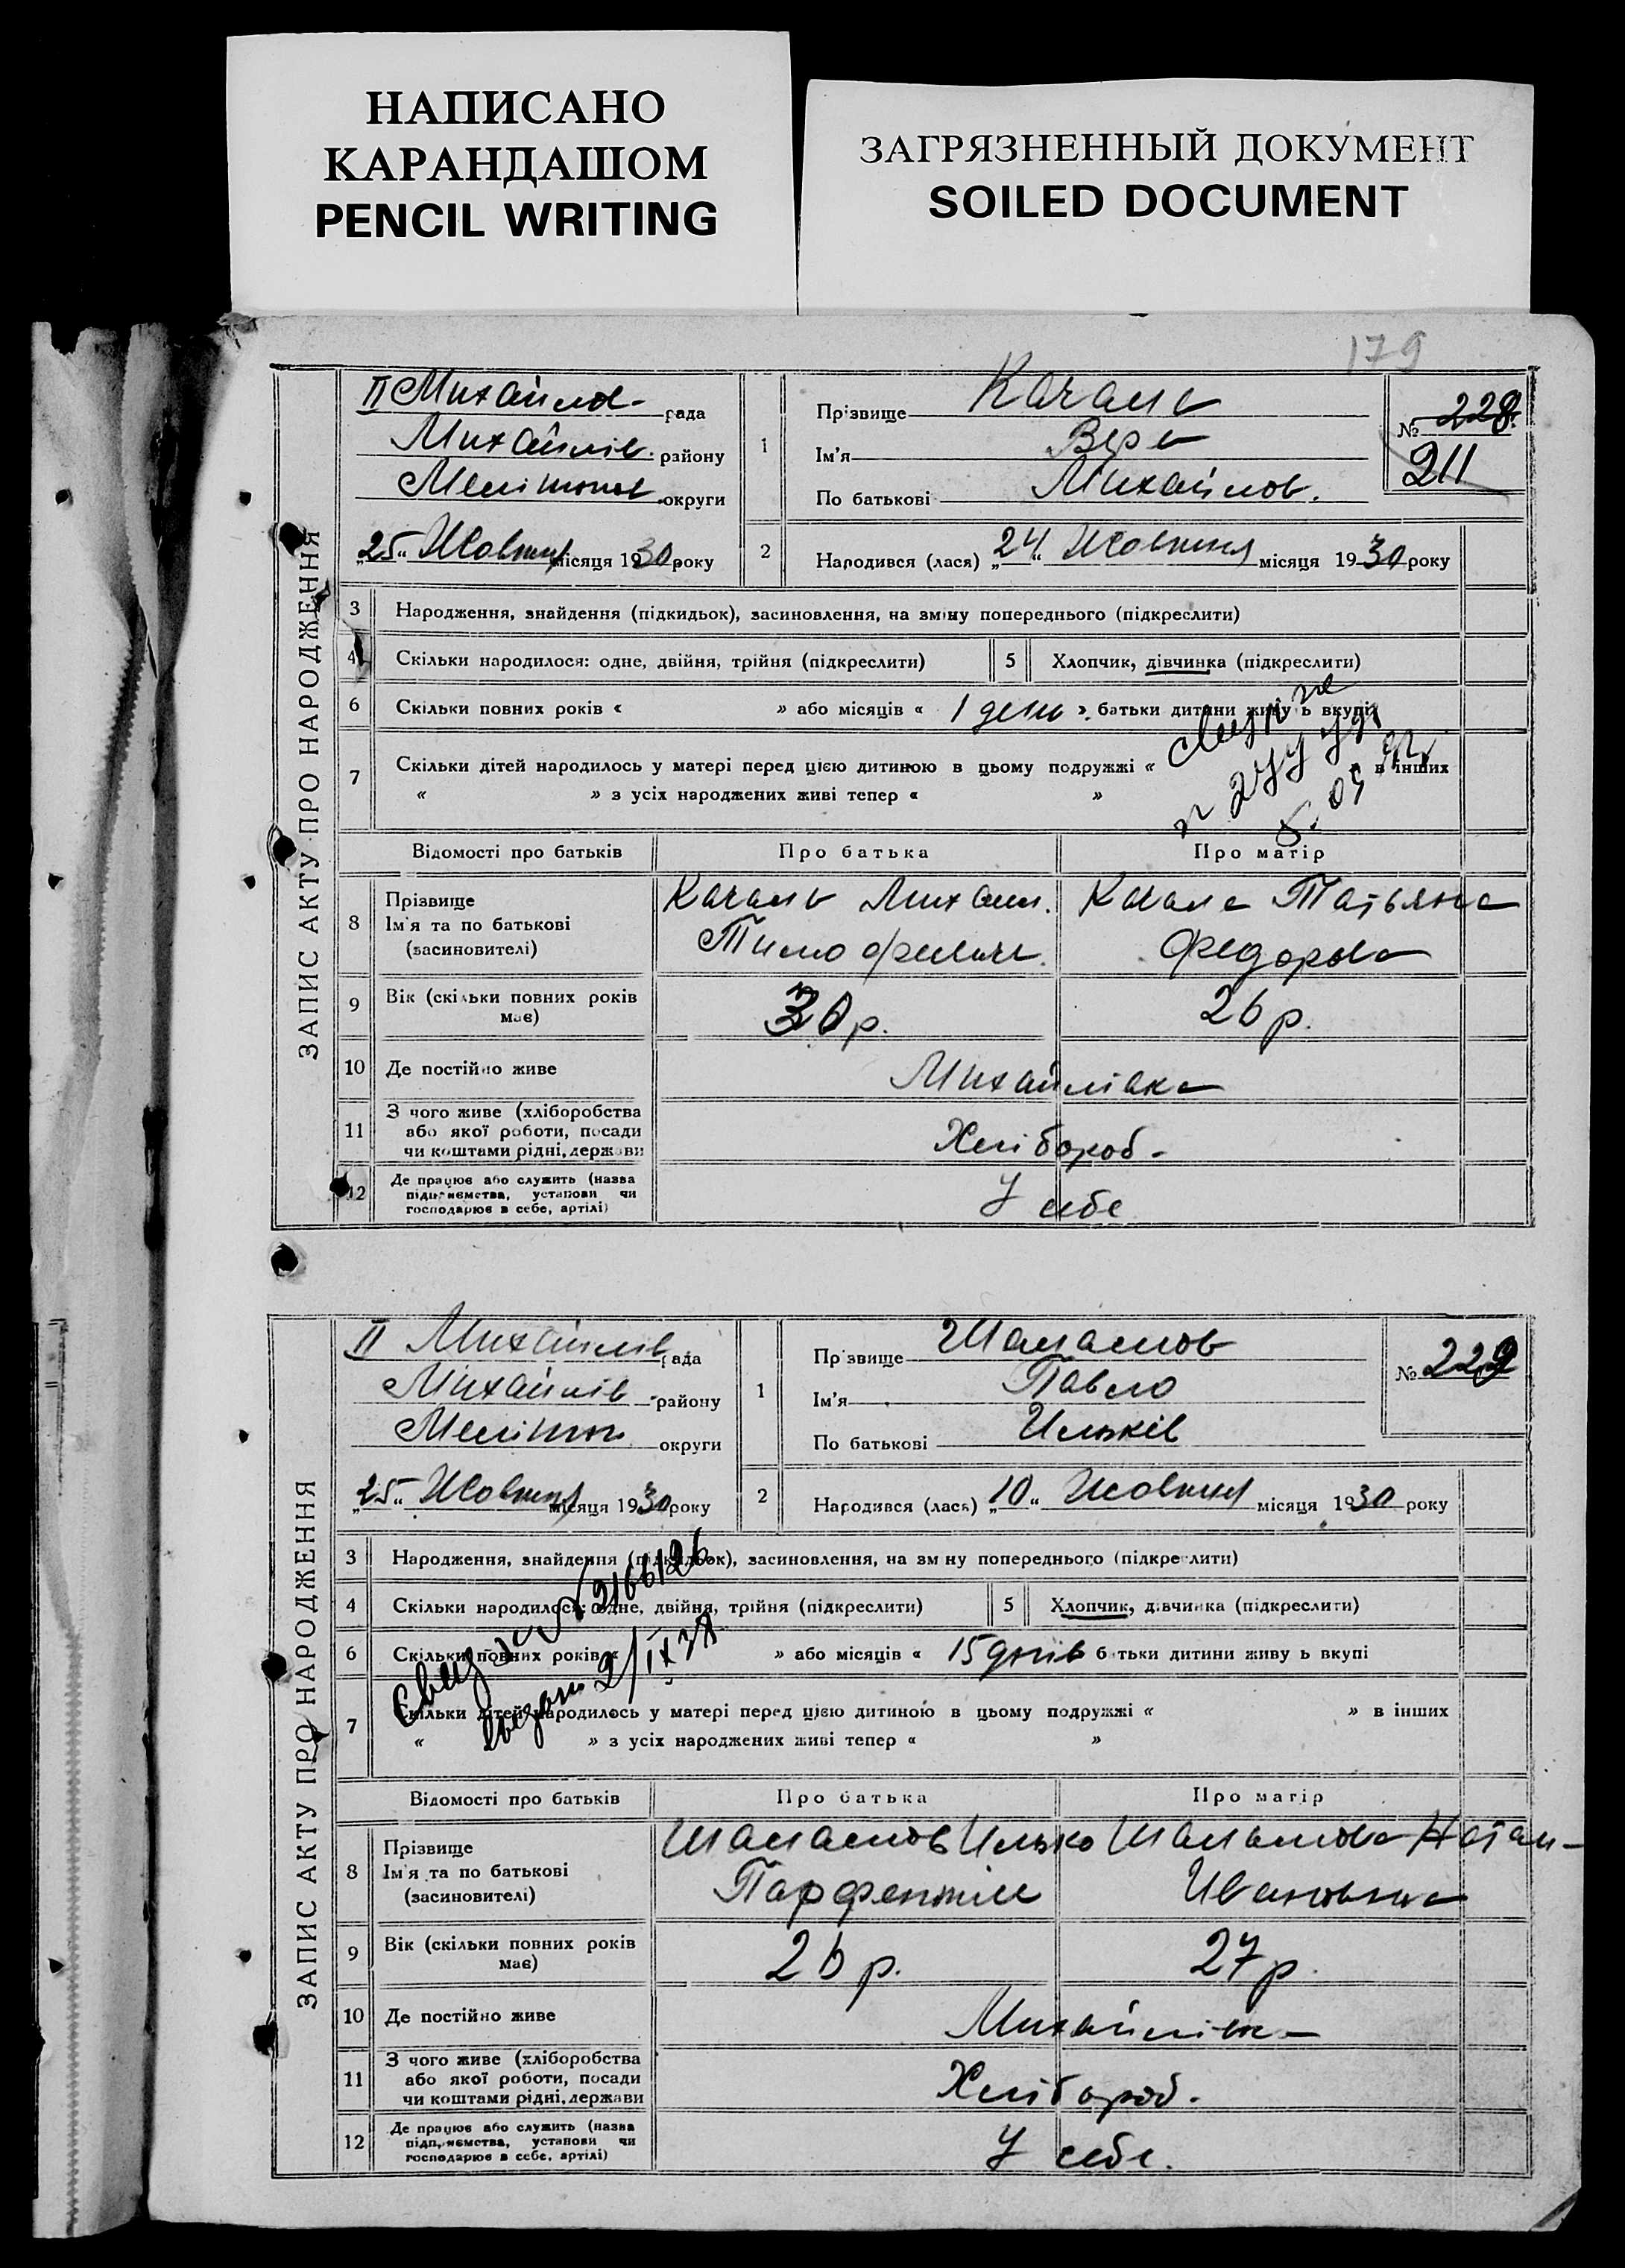 НАПИСАНО
КАРАНДАШОМ
PENCIL WRITING
ЗАГРЯЗНЕННЫЙ ДОКУМЕНТ
SOILED DOCUMENT
179
ЗАПИС АКТУ ПРО НАРОДЖЕННЯ
II Михайлов- рада
Михайлів. району
Мелітопол. округи
„25“ Жовтня місяця 1930 року
1
Прізвище
Ім'я Вера
По батькові Михайлов.
№ 228.
211
2
Народився (лася) „24“ Жовтня місяця 1930 року
3 Народження, знайдення (підкидьок), засиновлення, на зміну попереднього (підкреслити)
4 Скільки народилося: одне, двійня, трійня (підкреслити)
5 Хлопчик, дівчинка (підкреслити)
6 Скільки повних років « » або місяців « 1 день ». батьки дитини живу ь вкупі
7 Скільки дітей народилось у матері перед цією дитиною в цьому подружжі « в інших
« » з усіх народжених живі тепер « »
Відомості про батьків
Про батька
Про матір
8
Прізвище
Ім'я та по батькові
(засиновителі)
Михаил.
Тимофеевич.
Татьяна
Федоровна
9 Вік (скільки повних років
має)
30 р.
26 р.
10 Де постійно живе
Михайлівка
11
З чого живе (хліборобства
або якої роботи, посади
чи коштами рідні, держави
Хлібороб-
12
Де працює або служить (назва
підприємства, установи чи
господарює в себе, артілі)
У себе
ЗАПИС АКТУ ПРО НАРОДЖЕННЯ
II Михайлів рада
Михайлів- району
Мелітоп. округи
„25“ Жовтня місяця 1930 року
1
Пр звище
Ім'я Павло
По батькові Ильків
№ 229
2
Народився (лася) „10“ Жовтня місяця 1930 року
3 Народження, знайдення (підкидьок), засиновлення, на зм ну попереднього (підкреслити)
4 Скільки народилося: одне, двійня, трійня (підкреслити)
5 Хлопчик, дівчинка (підкреслити)
6 Скільки повних років « » або місяців « 15 днів б тьки дитини живу ь вкупі
7 Скільки дітей народилось у матері перед цією дитиною в цьому подружжі « » в інших
« » з усіх народжених живі тепер « »
2166126
2/IX 38
Відомості про батьків
Про батька
Про матір
8
Прізвище
Ім'я та по батькові
(засиновителі)
Илько
Ивановна
9 Вік (скільки повних років
має)
26 р.
27 р.
10 Де постійно живе
Михайлівка
11
З чого живе (хліборобства
або якої роботи, посади
чи коштами рідні, держави
Хлібороб.
12
Де працює або служить (назва
підприємства, установи чи
господарює в себе, артілі)
У себе.